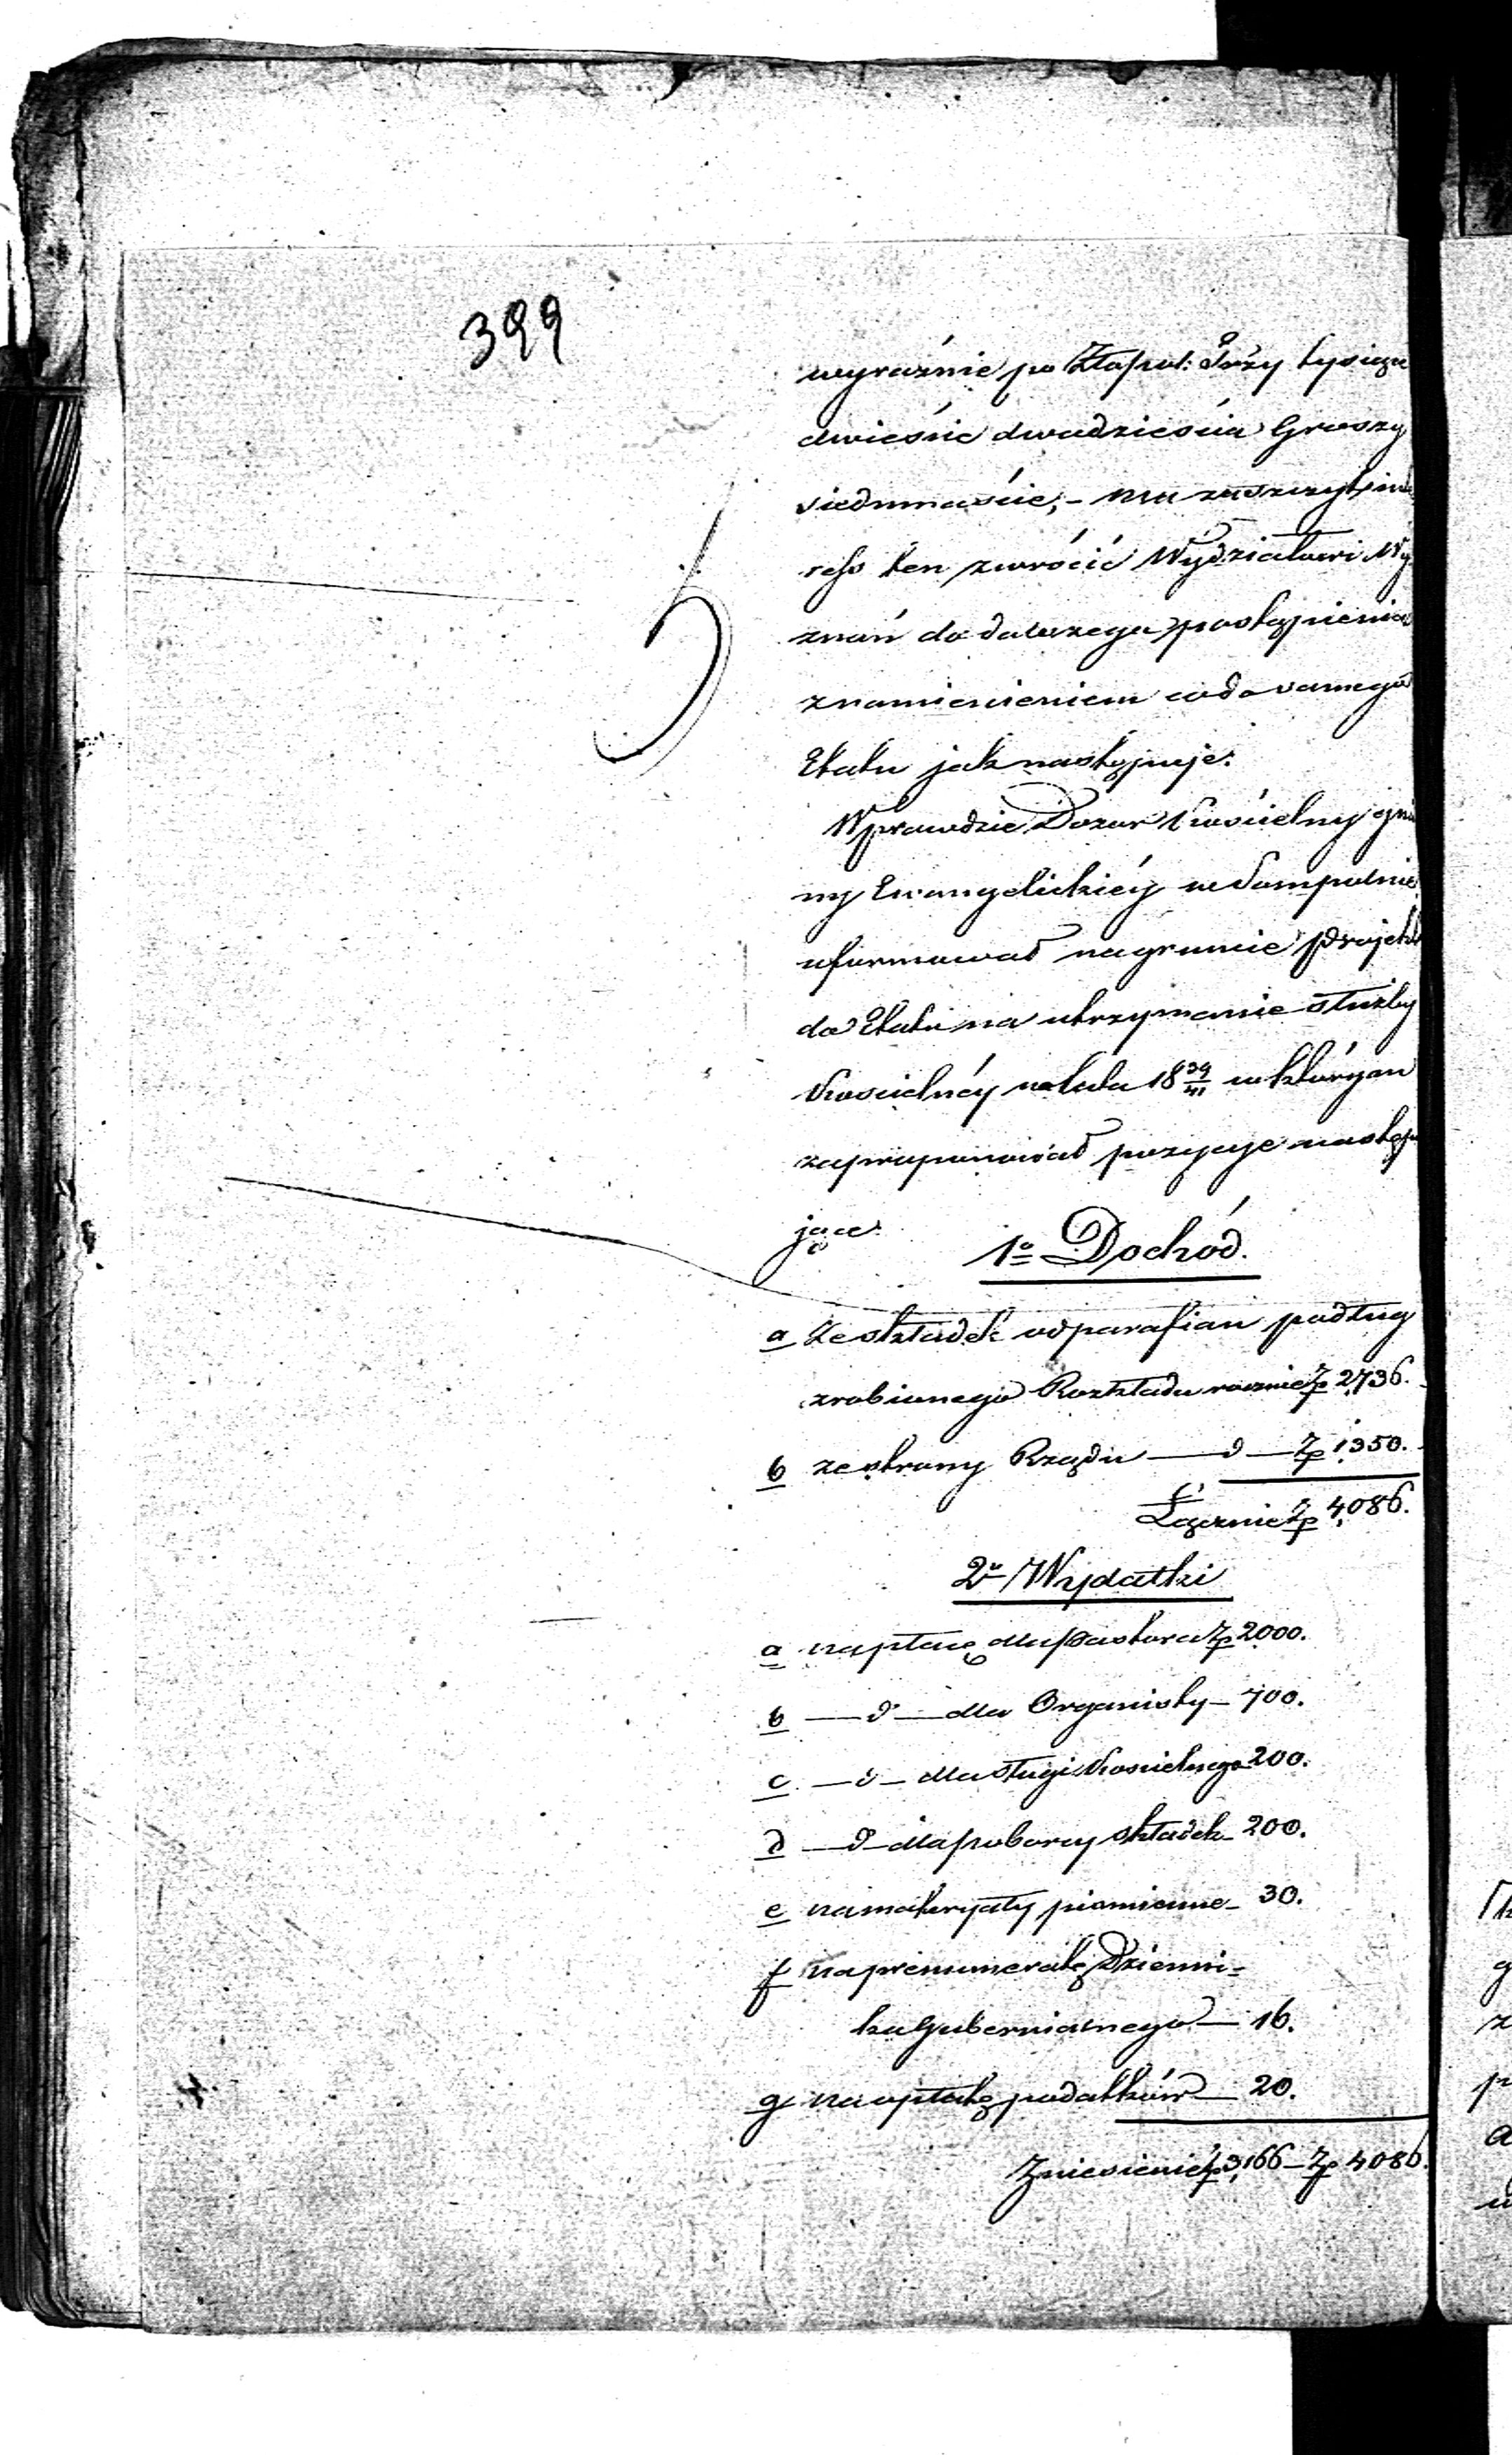 399
wyraźnie po Złopol: Trzy tysiące
dwieście dwadzieścia Groszy
siedmnaście, - ma zaszczyt inte
ress ten zwrócić Wydziałowi Wy
znań do dalszego postąpienia
znamienieniem co do samego
Etatu jak następuje.
Wprawdzie Dozor Kościelny gmi
ny Ewangelickiéy w Sompolnie
uformował na gruncie projekt
do Etatu na utrzymanie służby
Kościelnéy na lata 18 39/41 w którym
zaproponował pozycye następ
jące.
1o Dochód.
a ze składek od parafian podług
zrobionego Rozkładu rocznie Zp 2,736.
b ze strony Rządu — d — Zp 1,350.
Łącznie Zp 4,086.
2o Wydatki
a na płacę dla Pastora Zp 2000.
b — d — dla Organisty — 700.
c — d — dla sługi Kościelnego 200.
d — d — dla poborcy składek — 200.
e na materyały piśmienne — 30.
f na prenumeratę Dzienni-
ka Gubernialnego — 16.
g na opłatę podatków — 20.
Zniesienie Zp 3,166 — Zp 4086.